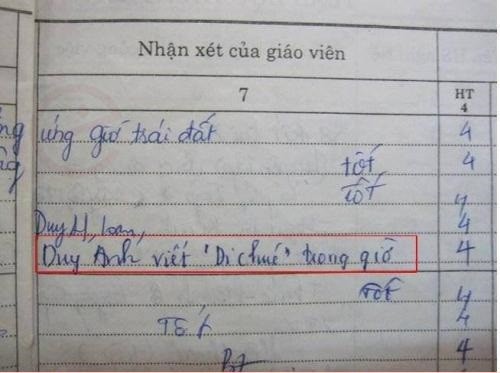 Nhận xét của giáo viên
7 HT 4
ứng Giờ trái đất 4
tốt 4
tốt 4
Duy 4
Duy Anh viết "Di chúc" trong giờ 4
Tốt 4
Tốt 4
4